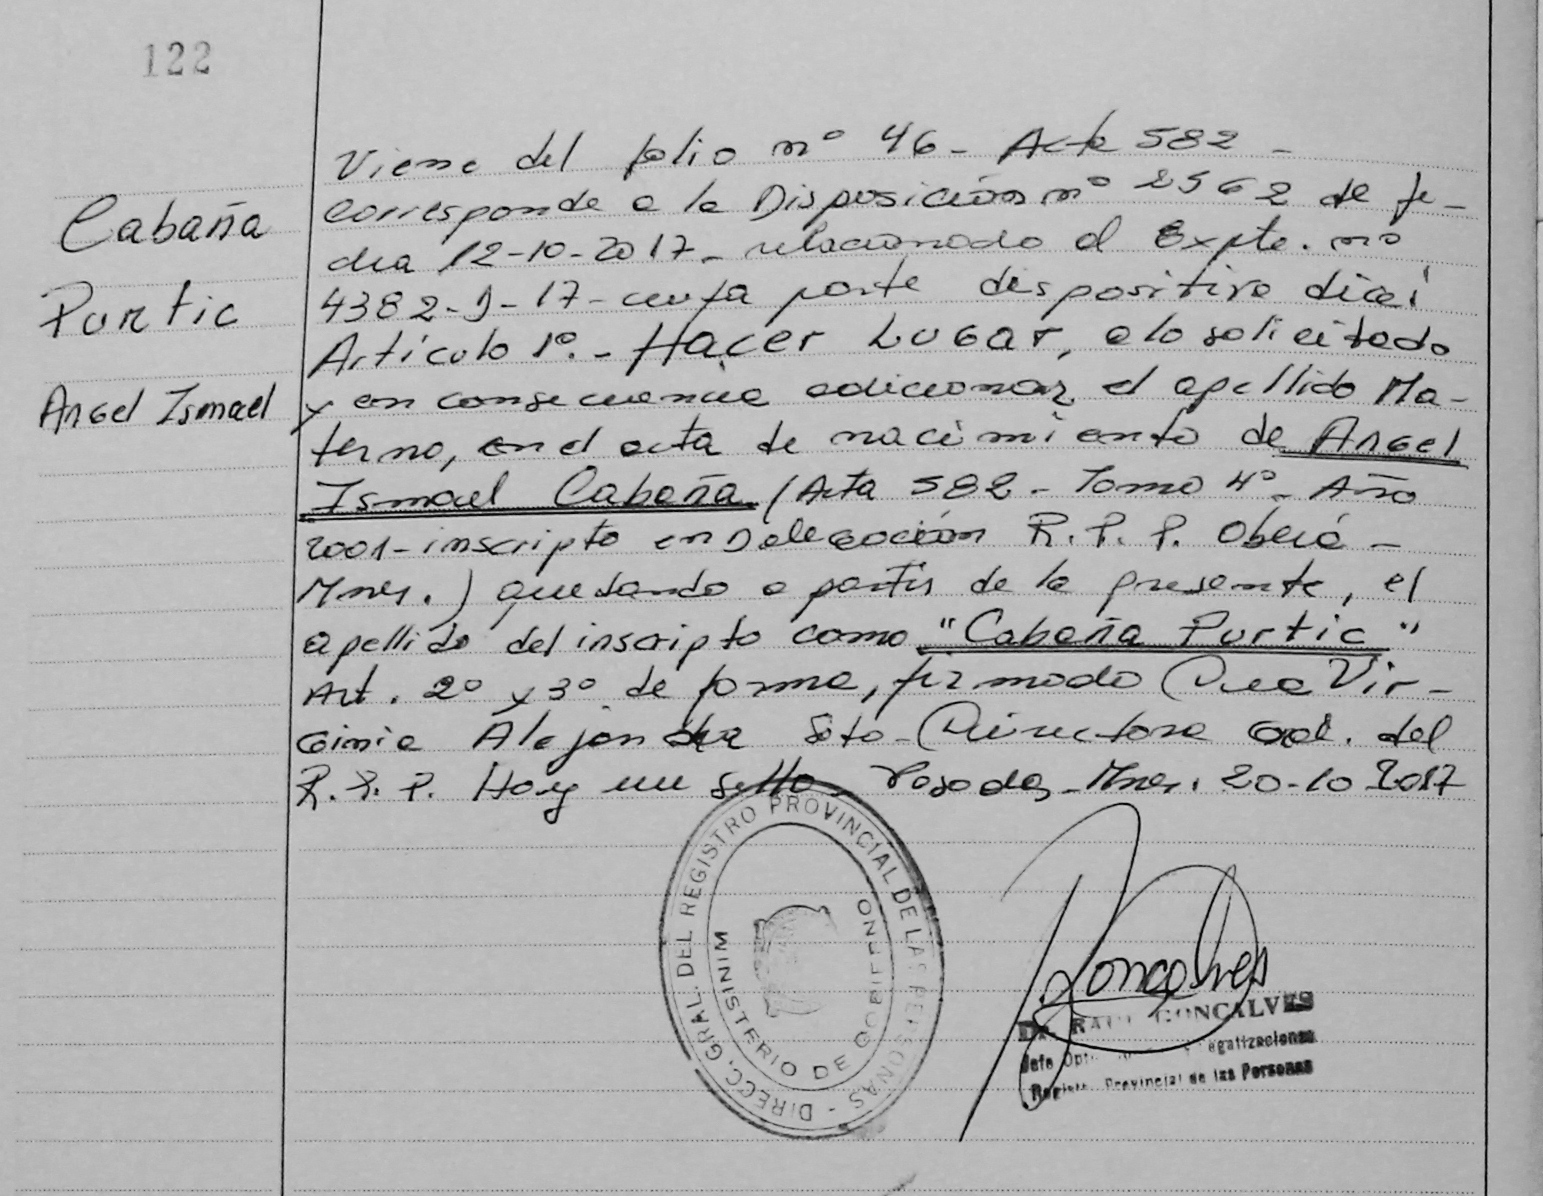 122
Cabaña
Purtic
Angel Ismael
Viene del folio nº 46 - Acta 582 -
Corresponde a la Disposición nº 2562 de fe-
cha 12-10-2017 - relacionado al Expte. nº
4382-J-17 - cuya parte dispositiva dice:
Artículo 1º. - Hacer Lugar, a lo solicitado
y en consecuencia adicionar, el apellido Ma-
terno, en el acta de nacimiento de Angel
Ismael Cabaña (Acta 582 - Tomo 4º - Año
2001 - inscripto en Delegación R.P.P. Oberá -
Mnes.) quedando a partir de la presente, el
apellido del inscripto como "Cabaña Purtic"
Art. 2º y 3º de forma, firmado Dra Vir-
ginia Alejandra Soto - Directora Gral. del
R.P.P. Hay un sello - Posadas - Mnes. 20-10-2017
DIRECC. GRAL. DEL REGISTRO PROVINCIAL DE LAS PERSONAS -
MINISTERIO DE GOBIERNO
Goncalves
Dr. RAUL GONCALVES
Jefe Dpto. Legalizaciones
Registro Provincial de las Personas